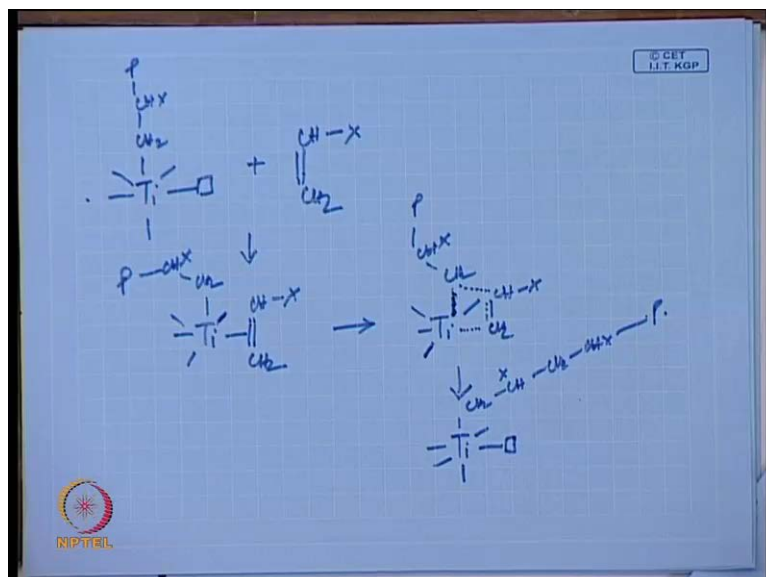 © CET
I.I.T. KGP
P
CHX
CH2
Ti
+
CH-X
CH2
P-CHX
CH2
Ti
CH-X
CH2
P
CHX
CH2
CH-X
Ti
CH2
CH2-CHX-CH2-CHX-P
Ti
NPTEL